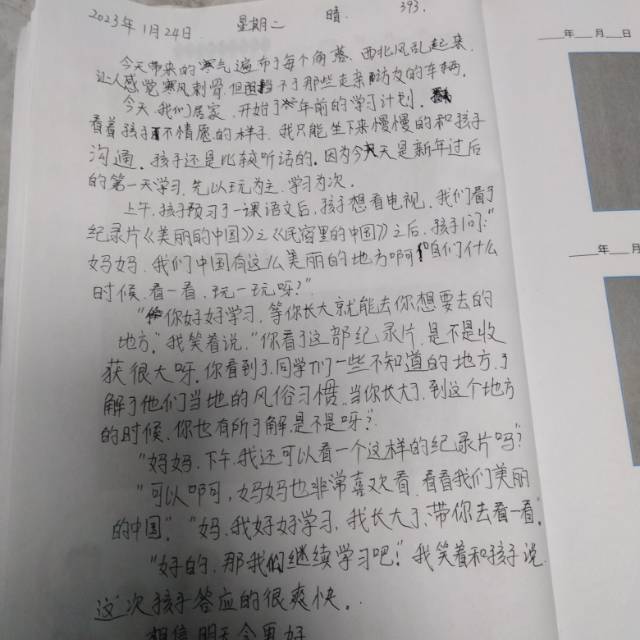 2023年1月24日 星期二 晴 393.
今天带来的寒气遍布了每个角落、西北风乱起来
让人感觉寒风刺骨.但阻挡不了那些走亲访友的车辆。
今天.我们居家.开始了年前的学习计划.
看着孩子不情愿的样子.我只能坐下来慢慢的和孩子
沟通。孩子还是比较听话的.因为今天是新年过后
的第一天学习.先以玩为主.学习为次.
上午.孩子预习了一课语文后.孩子想看电视.我们看了
纪录片《美丽的中国》之《民宿里的中国》之后.孩子问:"
妈妈.我们中国有这么美丽的地方啊!咱们什么
时候.看一看.玩一玩呀?"
"你好好学习.等你长大就能去你想要去的
地方."我笑着说."你看了这部纪录片.是不是收
获很大呀.你看到了.同学们一些不知道的地方.了
解了他们当地的风俗习惯.当你长大了.到这个地方
的时候.你也有所了解.是不是呀?"
"妈妈.下午.我还可以看一个这样的纪录片吗?"
"可以啊.妈妈也非常喜欢看.看看我们美丽
的中国"."妈.我好好学习.我长大了.带你去看一看."
"好的.那我们继续学习吧."我笑着和孩子说.
这次孩子答应的很爽快.
相信明天会更好
年 月 日
年 月